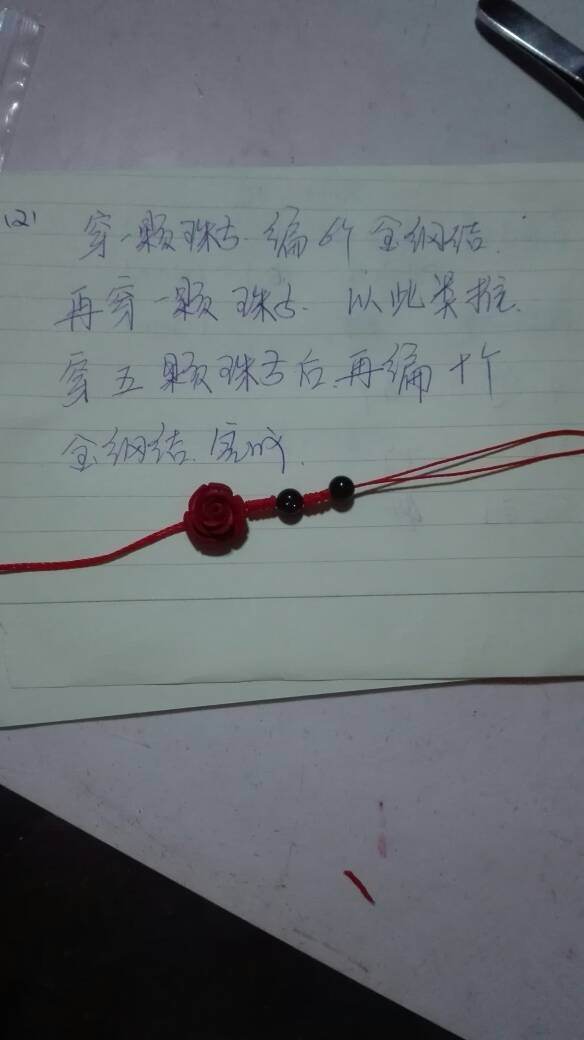 (2) 穿一颗珠子.编6个金刚结.
再穿一颗珠子.以此类推.
穿五颗珠子后.再编十个
金刚结.完成.